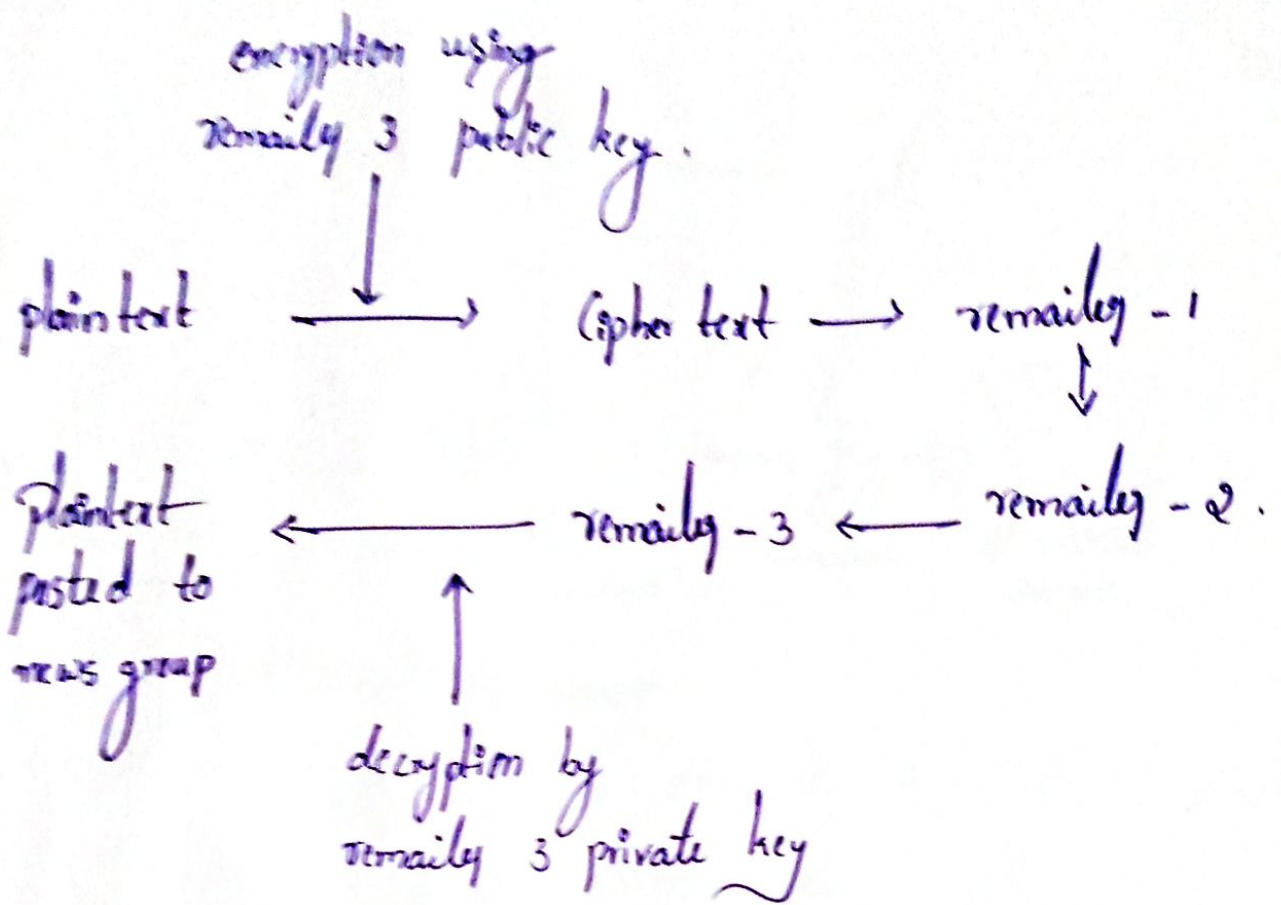 encryption using
remailer 3 public key.
plaintext
Cipher text
remailer - 1
plaintext
posted to
news group
remailer - 3
remailer - 2.
decryption by
remailer 3 private key